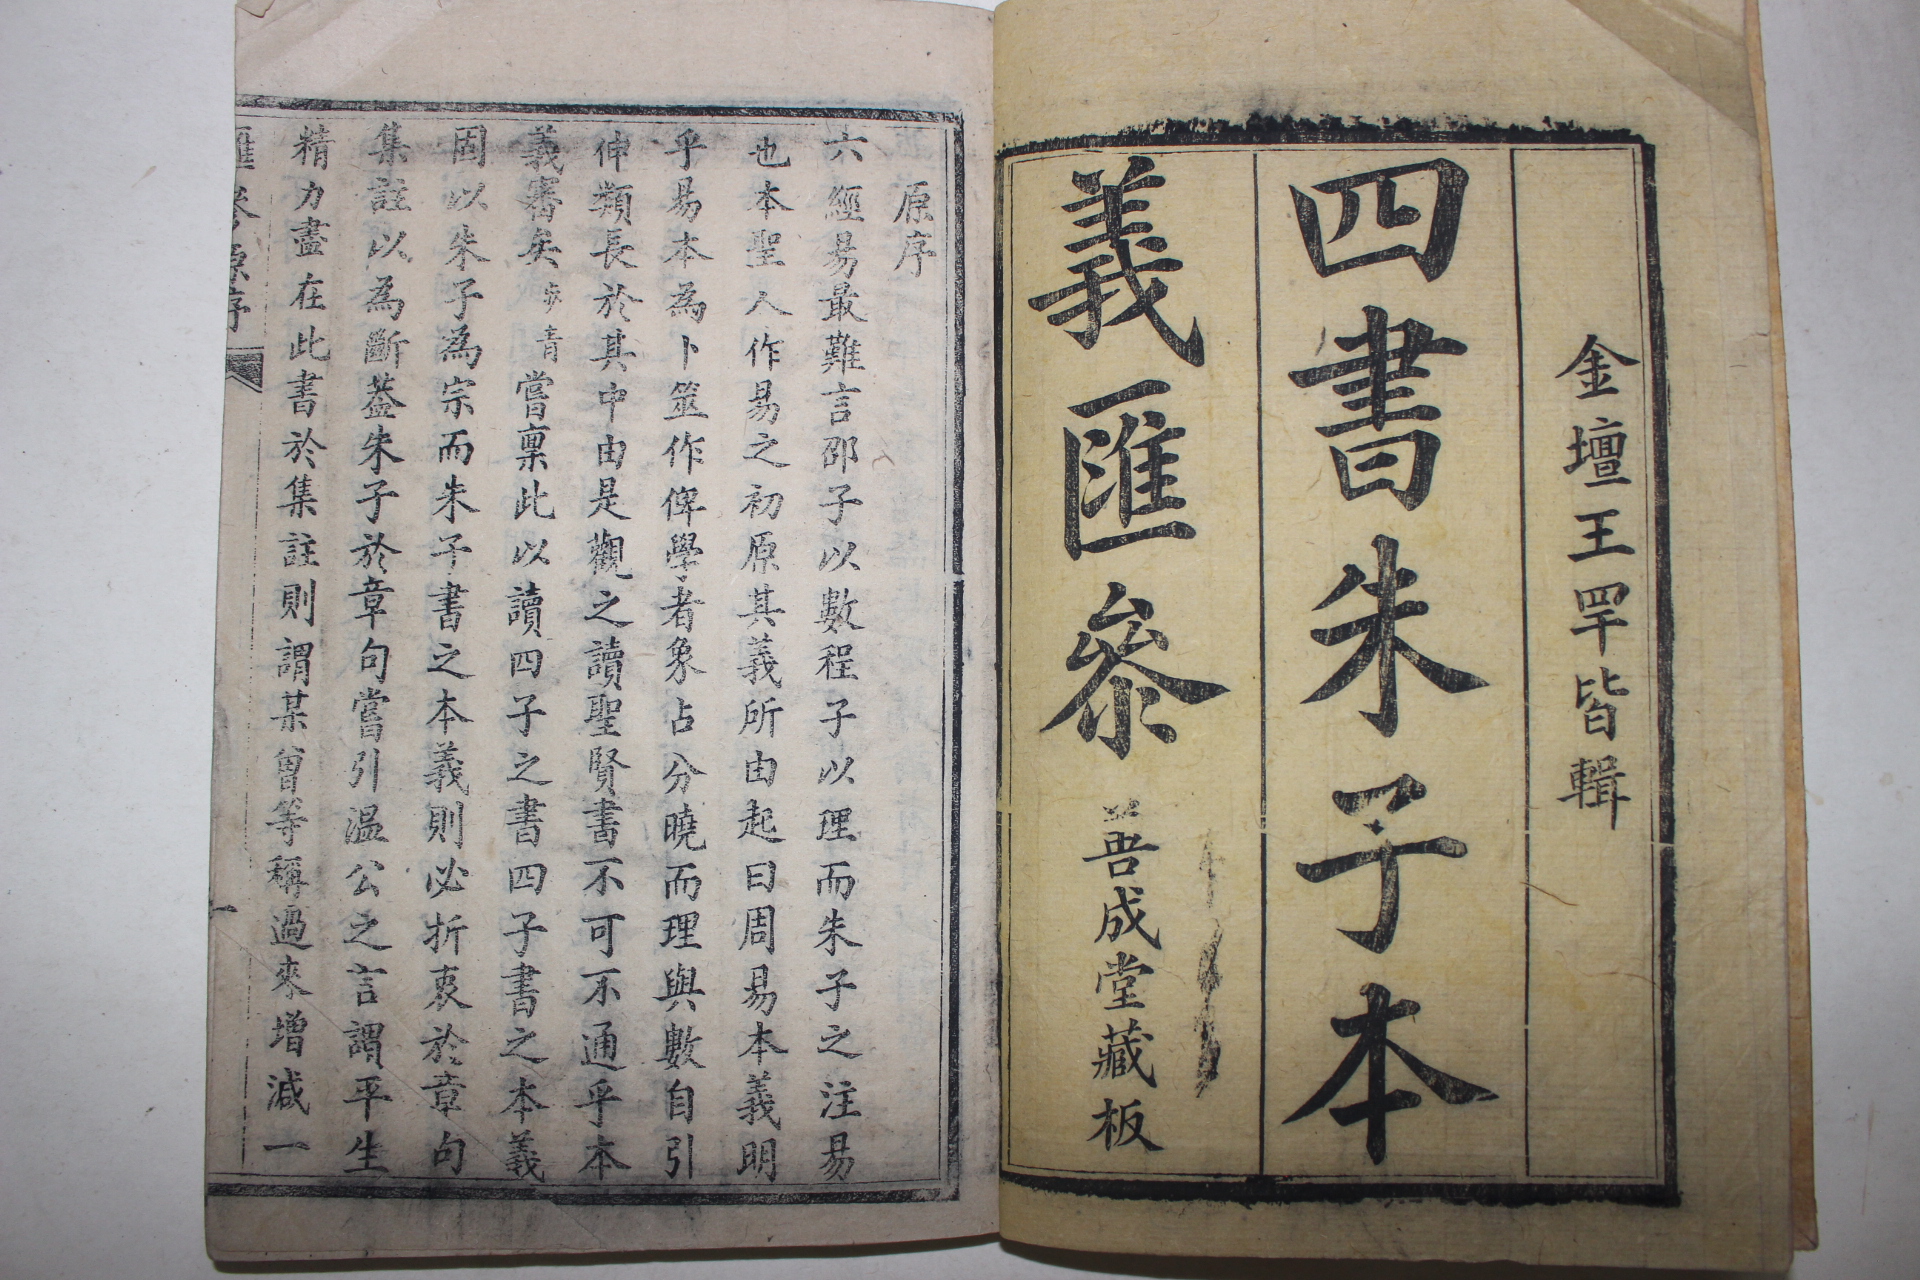 金壇王罕皆輯
四書朱子本
義匯叅
善成堂藏板
原序
六經易最難言邵子以數程子以理而朱子之注易
也本聖人作易之初原其義所由起曰周易本義明
乎易本為卜筮作俾學者象占分曉而理與數自引
伸類長於其中由是觀之讀聖賢書不可不通乎本
義審矣步青嘗稟此以讀四子之書四子書之本義
固以朱子為宗而朱子書之本義則必折衷於章句
集註以為斷葢朱子於章句嘗引温公之言謂平生
精力盡在此書於集註則謂某曾等稱過來增減一
匯參原序
一